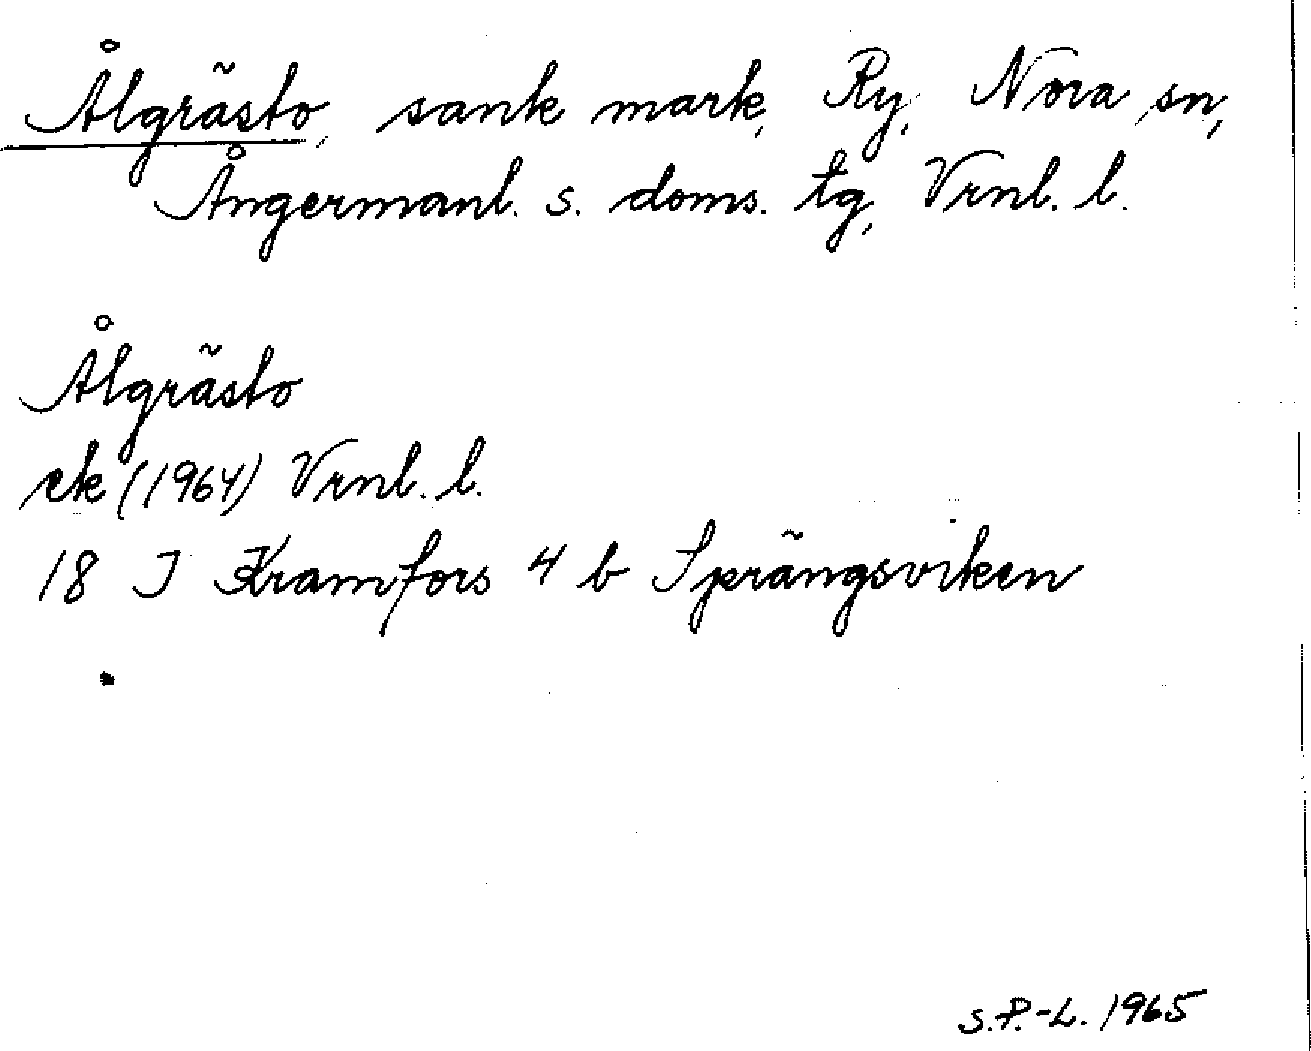 Ålgrästo, sank mark, Ry, Nora sn,
Ångermanl. s. doms. tg, Vrnl. l.
Ålgrästo
ek (1964) Vrnl. l.
18 I Kramfors 4 b Sprängsviken
S.P.-L. 1965